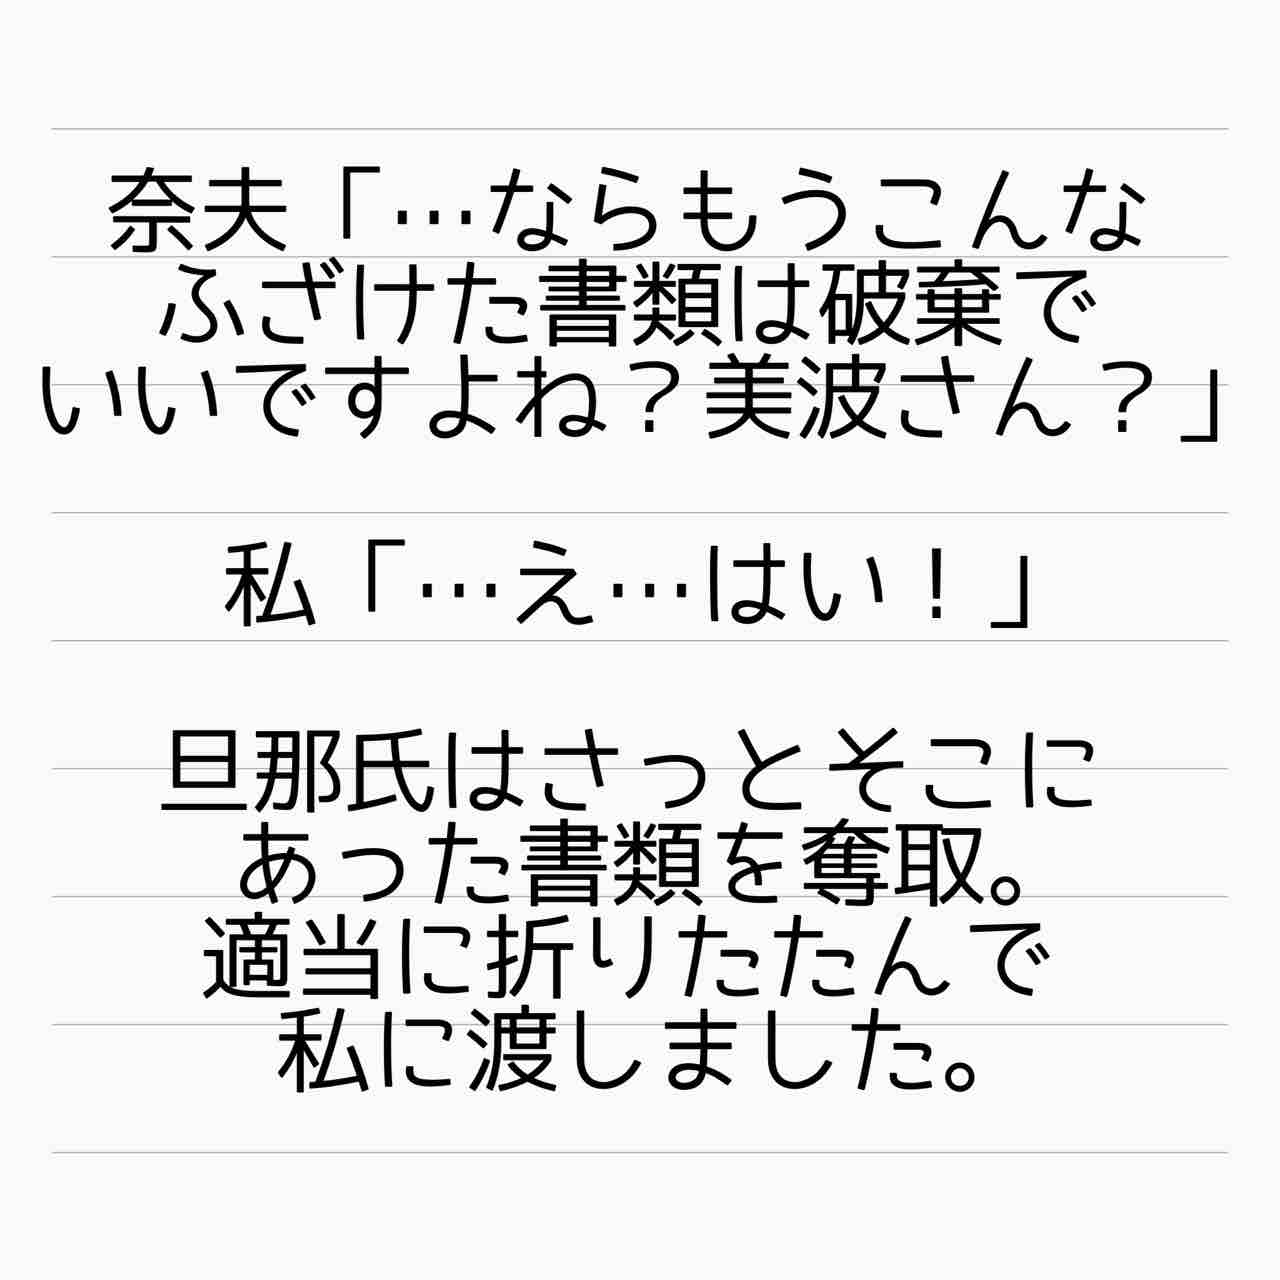 奈夫「…ならもうこんな
ふざけた書類は破棄で
いいですよね？美波さん？」
私「…え…はい！」
旦那氏はさっとそこに
あった書類を奪取。
適当に折りたたんで
私に渡しました。